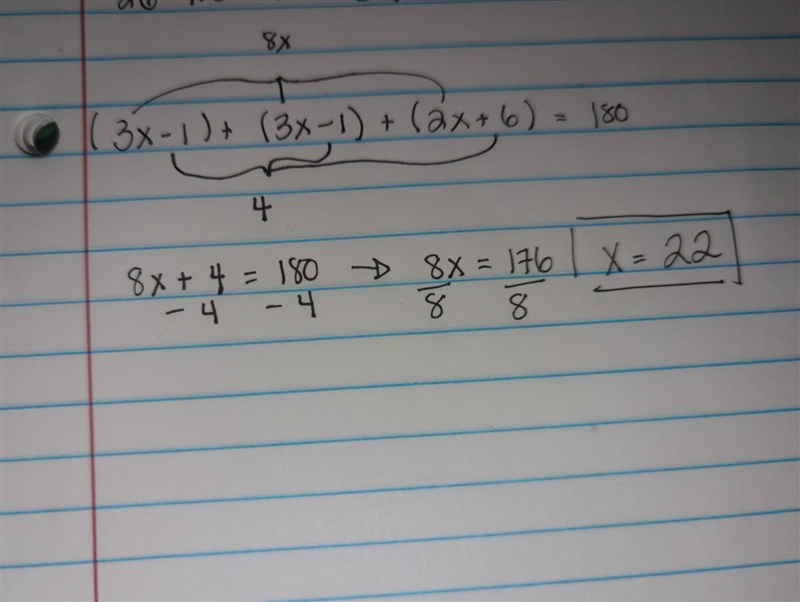 8x
(3x-1) + (3x-1) + (2x+6) = 180
4
8x + 4 = 180 → 8x = 176 x = 22
- 4 - 4 8 8